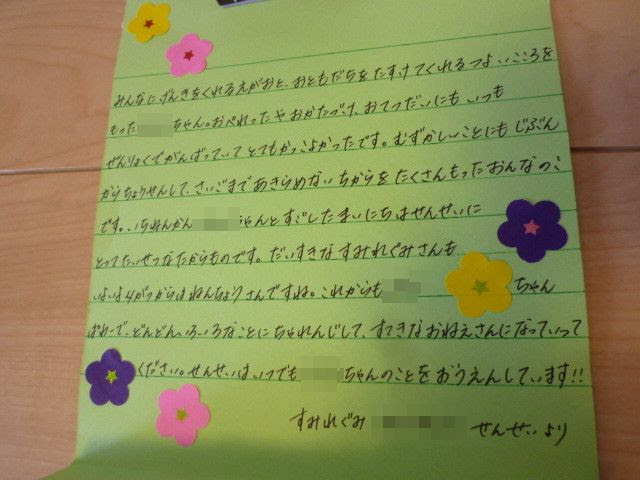 みんなに、げんきをくれるえがおと、おともだちをたすけてくれるつよいこころを
もった ちゃん。おべんとうやおかたづけ、おてつだいにもいつも
ぜんりょくでがんばっていてとてもかっこよかったです。むずかしいことにもじぶん
からちょうせんして、さいごまであきらめないちからをたくさんもったおんなのこ
です。いちねんかん ちゃんとすごしたまいにちはせんせいに
とってたいせつなたからものです。だいすきなすみれぐみさんも
いよいよ4がつからはねんちょうさんですね。これからも ちゃん
ぱわーで、どんどんいろいろなことにちゃれんじして、すてきなおねえさんになっていって
ください。せんせいはいつでも ちゃんのことをおうえんしています!!
すみれぐみ せんせいより